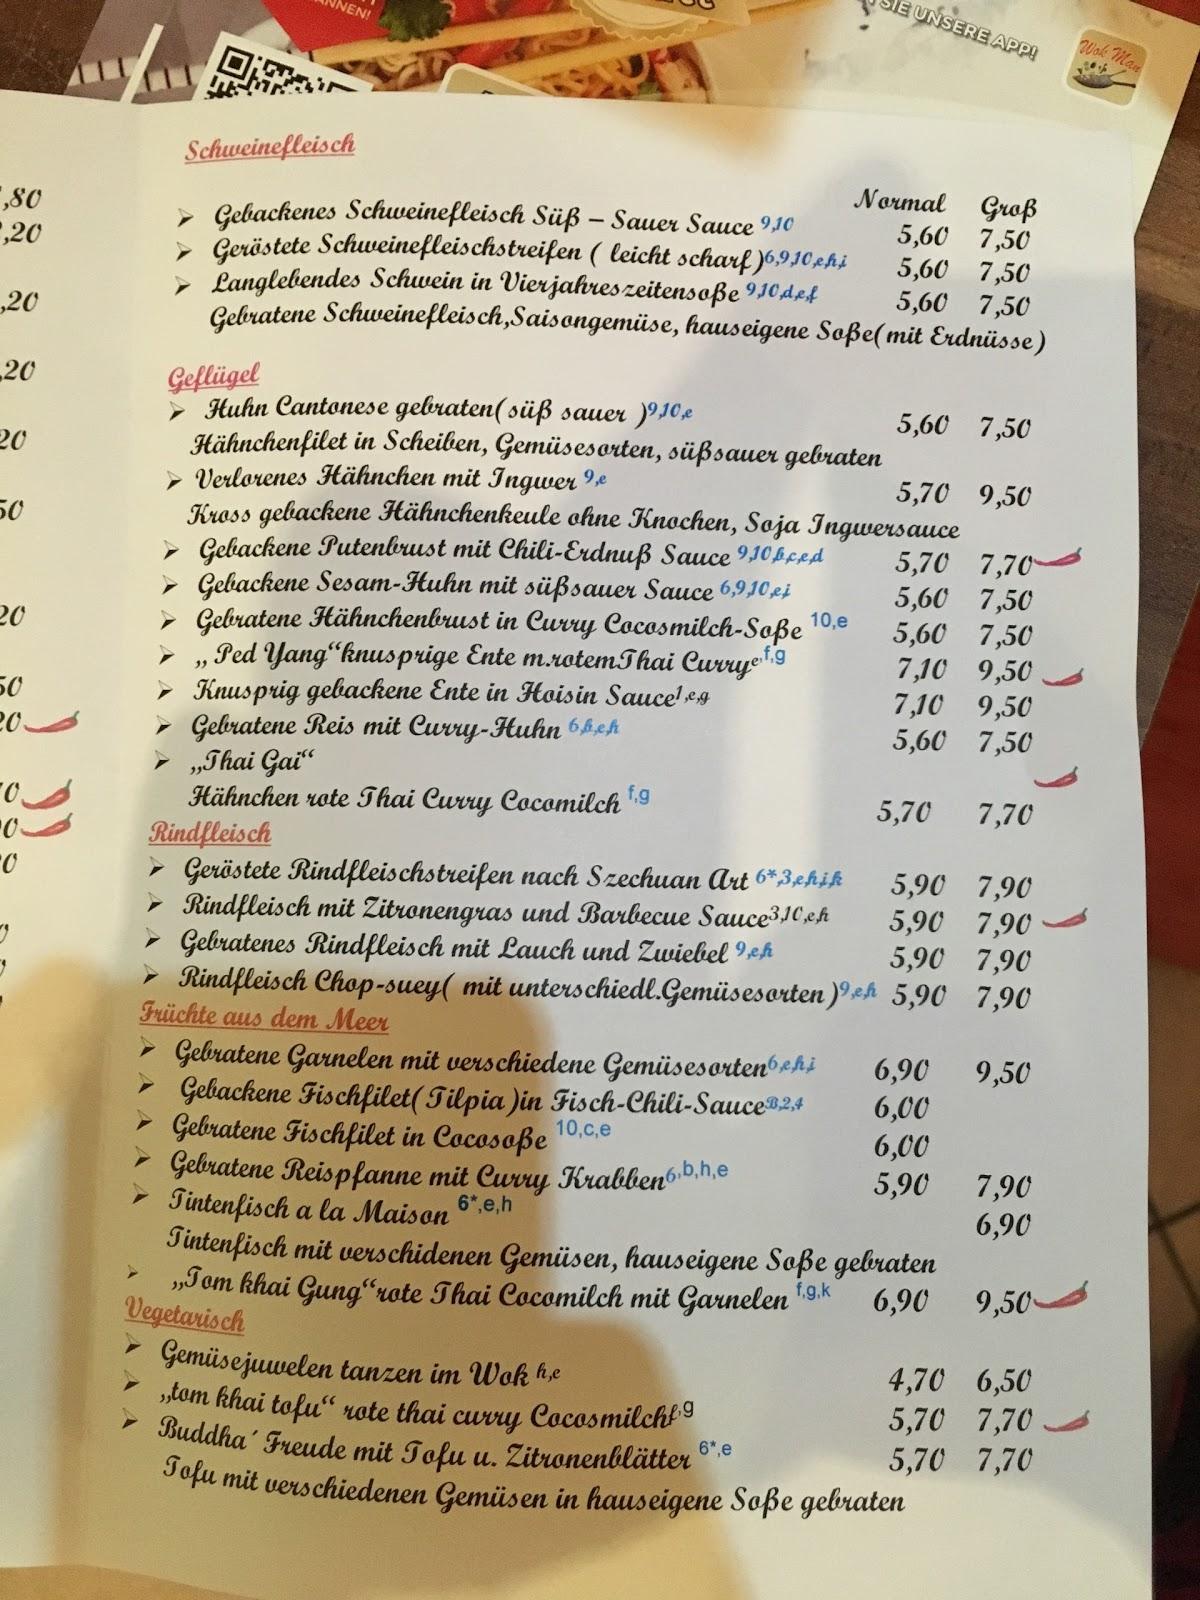 ANNEN!
SIE UNSERE APP!
Wok Man
,80
,20
,20
,20
20
50
20
50
20
Schweinefleisch
Normal Groß
➢ Gebackenes Schweinefleisch Süß – Sauer Sauce 9,10 5,60 7,50
➢ Geröstete Schweinefleischstreifen ( leicht scharf )6,9,10,e,h,i 5,60 7,50
➢ Langlebendes Schwein in Vierjahreszeitensoße 9,10,d,e,f 5,60 7,50
Gebratene Schweinefleisch,Saisongemüse, hauseigene Soße(mit Erdnüsse)
Geflügel
➢ Huhn Cantonese gebraten(süß sauer )9,10,e 5,60 7,50
Hähnchenfilet in Scheiben, Gemüsesorten, süßsauer gebraten
➢ Verlorenes Hähnchen mit Ingwer 9,e 5,70 9,50
Kross gebackene Hähnchenkeule ohne Knochen, Soja Ingwersauce
➢ Gebackene Putenbrust mit Chili-Erdnuß Sauce 9,10,b,c,e,d 5,70 7,70
➢ Gebackene Sesam-Huhn mit süßsauer Sauce 6,9,10,e,i 5,60 7,50
➢ Gebratene Hähnchenbrust in Curry Cocosmilch-Soße 10,e 5,60 7,50
➢ „ Ped Yang“knusprige Ente m.rotemThai Currye,f,g 7,10 9,50
➢ Knusprig gebackene Ente in Hoisin Sauce1,e,g 7,10 9,50
➢ Gebratene Reis mit Curry-Huhn 6,b,e,h 5,60 7,50
➢ „Thai Gai“
Hähnchen rote Thai Curry Cocomilch f,g 5,70 7,70
Rindfleisch
➢ Geröstete Rindfleischstreifen nach Szechuan Art 6*,3,e,h,i,k 5,90 7,90
➢ Rindfleisch mit Zitronengras und Barbecue Sauce3,10,e,h 5,90 7,90
➢ Gebratenes Rindfleisch mit Lauch und Zwiebel 9,e,h 5,90 7,90
➢ Rindfleisch Chop-suey( mit unterschiedl.Gemüsesorten )9,e,h 5,90 7,90
Früchte aus dem Meer
➢ Gebratene Garnelen mit verschiedene Gemüsesorten6,e,h,i 6,90 9,50
➢ Gebackene Fischfilet( Tilpia )in Fisch-Chili-SauceB,2,4 6,00
➢ Gebratene Fischfilet in Cocosoße 10,c,e 6,00
➢ Gebratene Reispfanne mit Curry Krabben6,b,h,e 5,90 7,90
➢ Tintenfisch a la Maison 6*,e,h 6,90
Tintenfisch mit verschidenen Gemüsen, hauseigene Soße gebraten
➢ „Tom khai Gung“rote Thai Cocomilch mit Garnelen f,g,k 6,90 9,50
Vegetarisch
➢ Gemüsejuwelen tanzen im Wok h,e 4,70 6,50
➢ „tom khai tofu“ rote thai curry Cocosmilchf,g 5,70 7,70
➢ Buddha´ Freude mit Tofu u. Zitronenblätter 6*,e 5,70 7,70
Tofu mit verschiedenen Gemüsen in hauseigene Soße gebraten